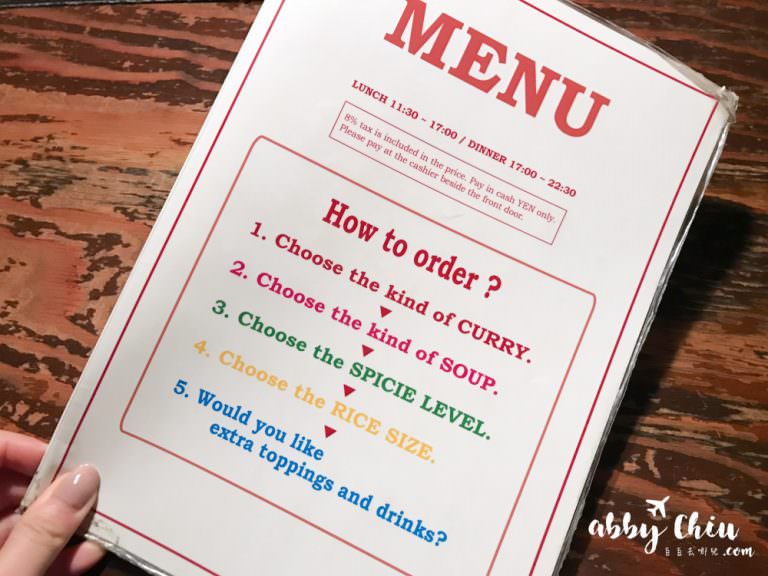 MENU
LUNCH 11:30 ~ 17:00 / DINNER 17:00 ~ 22:30
8% tax is included in the price. Pay in cash YEN only.
Please pay at the cashier beside the front door.
How to order ?
1. Choose the kind of CURRY.
2. Choose the kind of SOUP.
3. Choose the SPICIE LEVEL.
4. Choose the RICE SIZE.
5. Would you like
extra toppings and drinks?
abby Chiu
.com